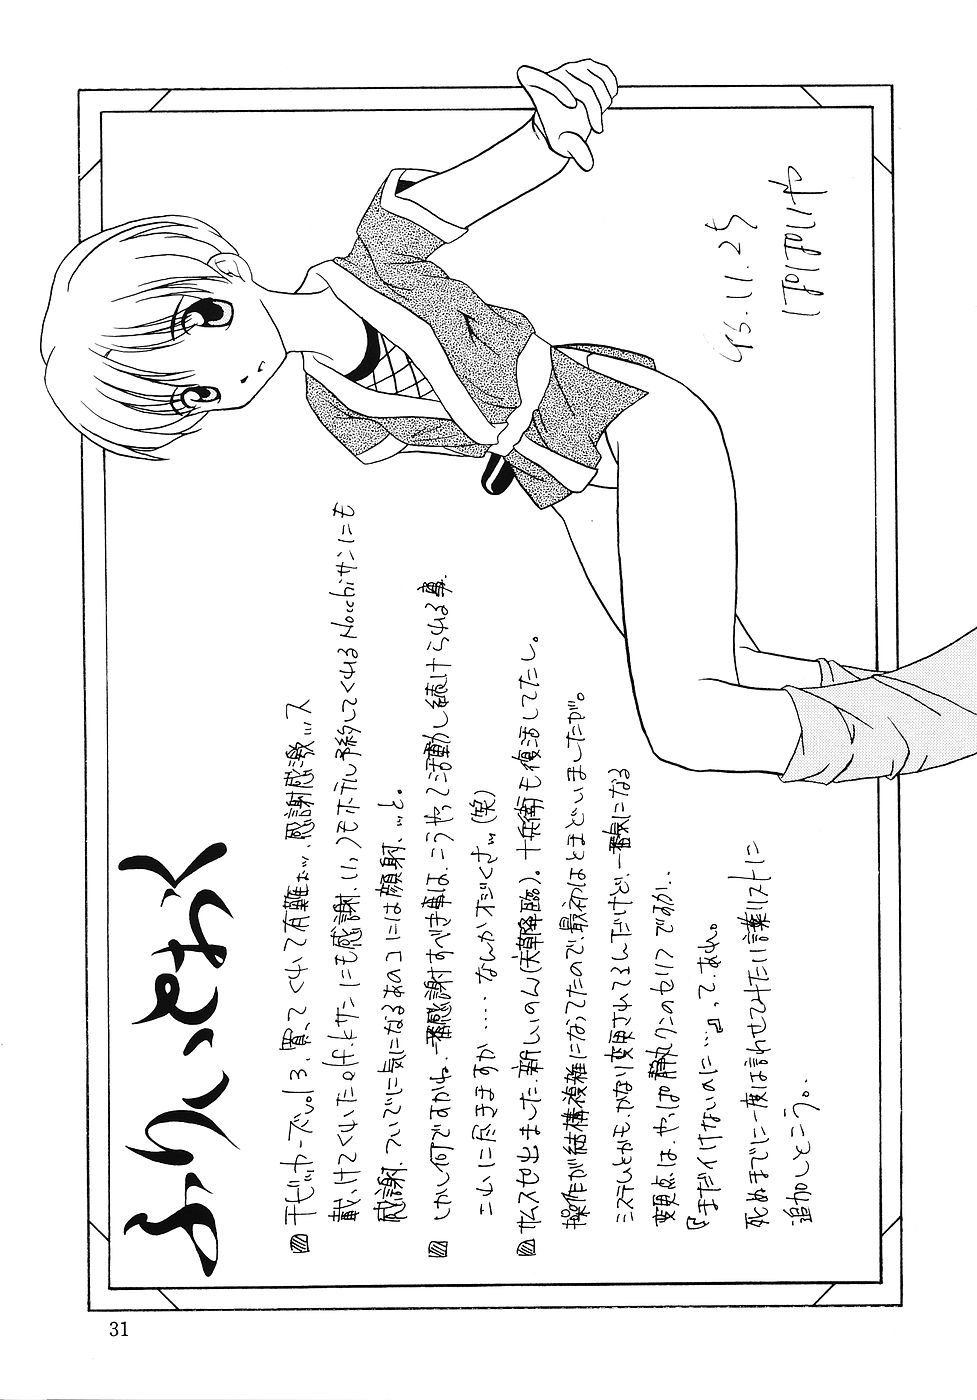 ふりいとおく
▨チビッカーズvol3、買ってくれて有難ォッ、感謝感激ッス
載っけてくれたeff.kサンにも感謝、いっつもホテル予約してくれるNocchiサンにも
感謝、ついでに気になるあのコには顔射、…っと。
▨しかし何ですかね、一番感謝すべき事は、こうやって活動し続けられる事、
これに尽きますか……なんかオジくさっ、(笑)
▨サムスピ出ました、新しいのん(天草降臨)。十兵衛も復活してたし。
操作が結構複雑になってたので、最初はとまどいましたが。
システムとかも、かなり変更されてるんだけど、一番気になる
変更点は、やっぱ静丸クンのセリフですか、、
『まだイけないのに…』って、あれ。
死ぬまでに一度は言わせてみたい言葉リストに
追加しとこう。。
'95.11.25
ぱぱいや
31